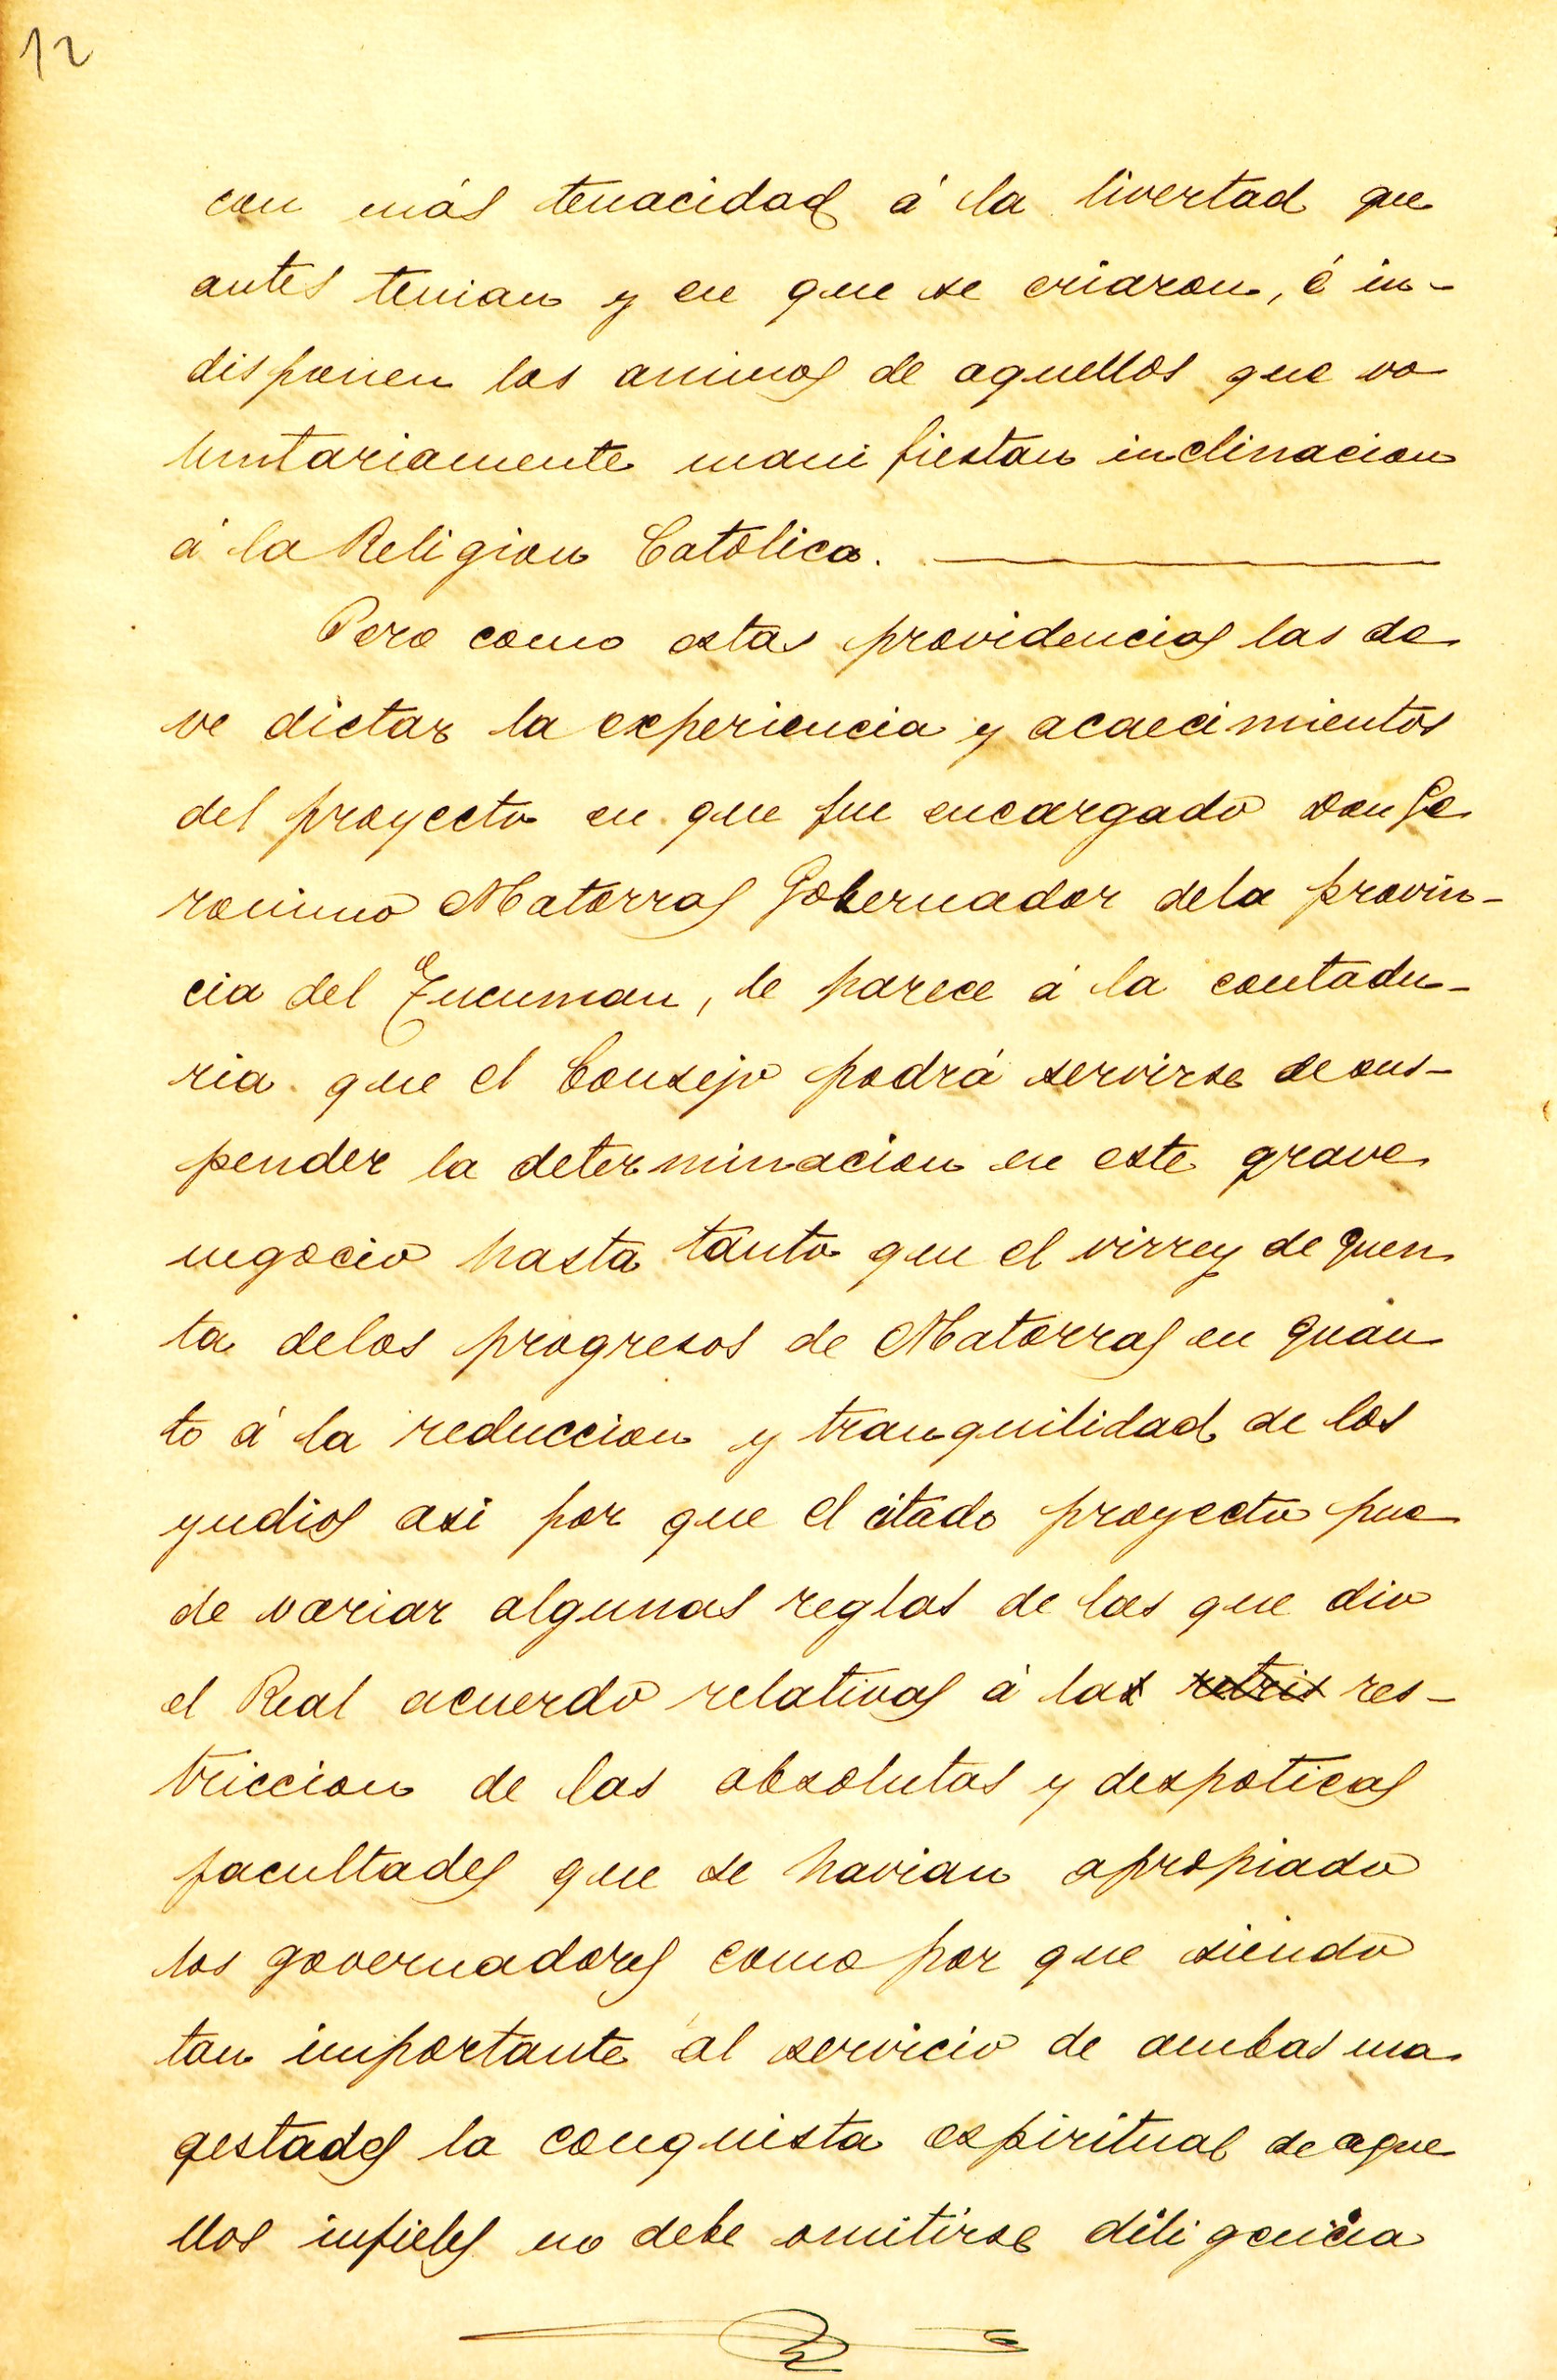 12
con más tenacidad á la livertad que
antes tenian y en que se criaron, é in-
disponen los animos de aquellos que vo
luntariamente manifiestan inclinacion
á la Religion Catolica.
Pero como estas providencias las de
ve dictar la experiencia y acaecimientos
del proyecto en que fue encargado Don Ge
ronimo Matorras Gobernador dela provin-
cia del Tucuman, le parece á la contadu-
ria que el Consejo podrá servirse de sus-
pender la determinacion en este grave
negocio hasta tanto que el virrey de quen
ta delos progresos de Matorras en quan
to á la reduccion y tranquilidad de los
yndios asi por que el citado proyecto pue
de variar algunas reglas de las que dio
el Real acuerdo relativas á las retris res-
triccion de las absolutas y despoticas
facultades que se havian apropiado
los governadores como por que siendo
tan importante al servicio de ambas ma
gestades la conquista espiritual de aque
llos infieles no debe omitirse diligencia